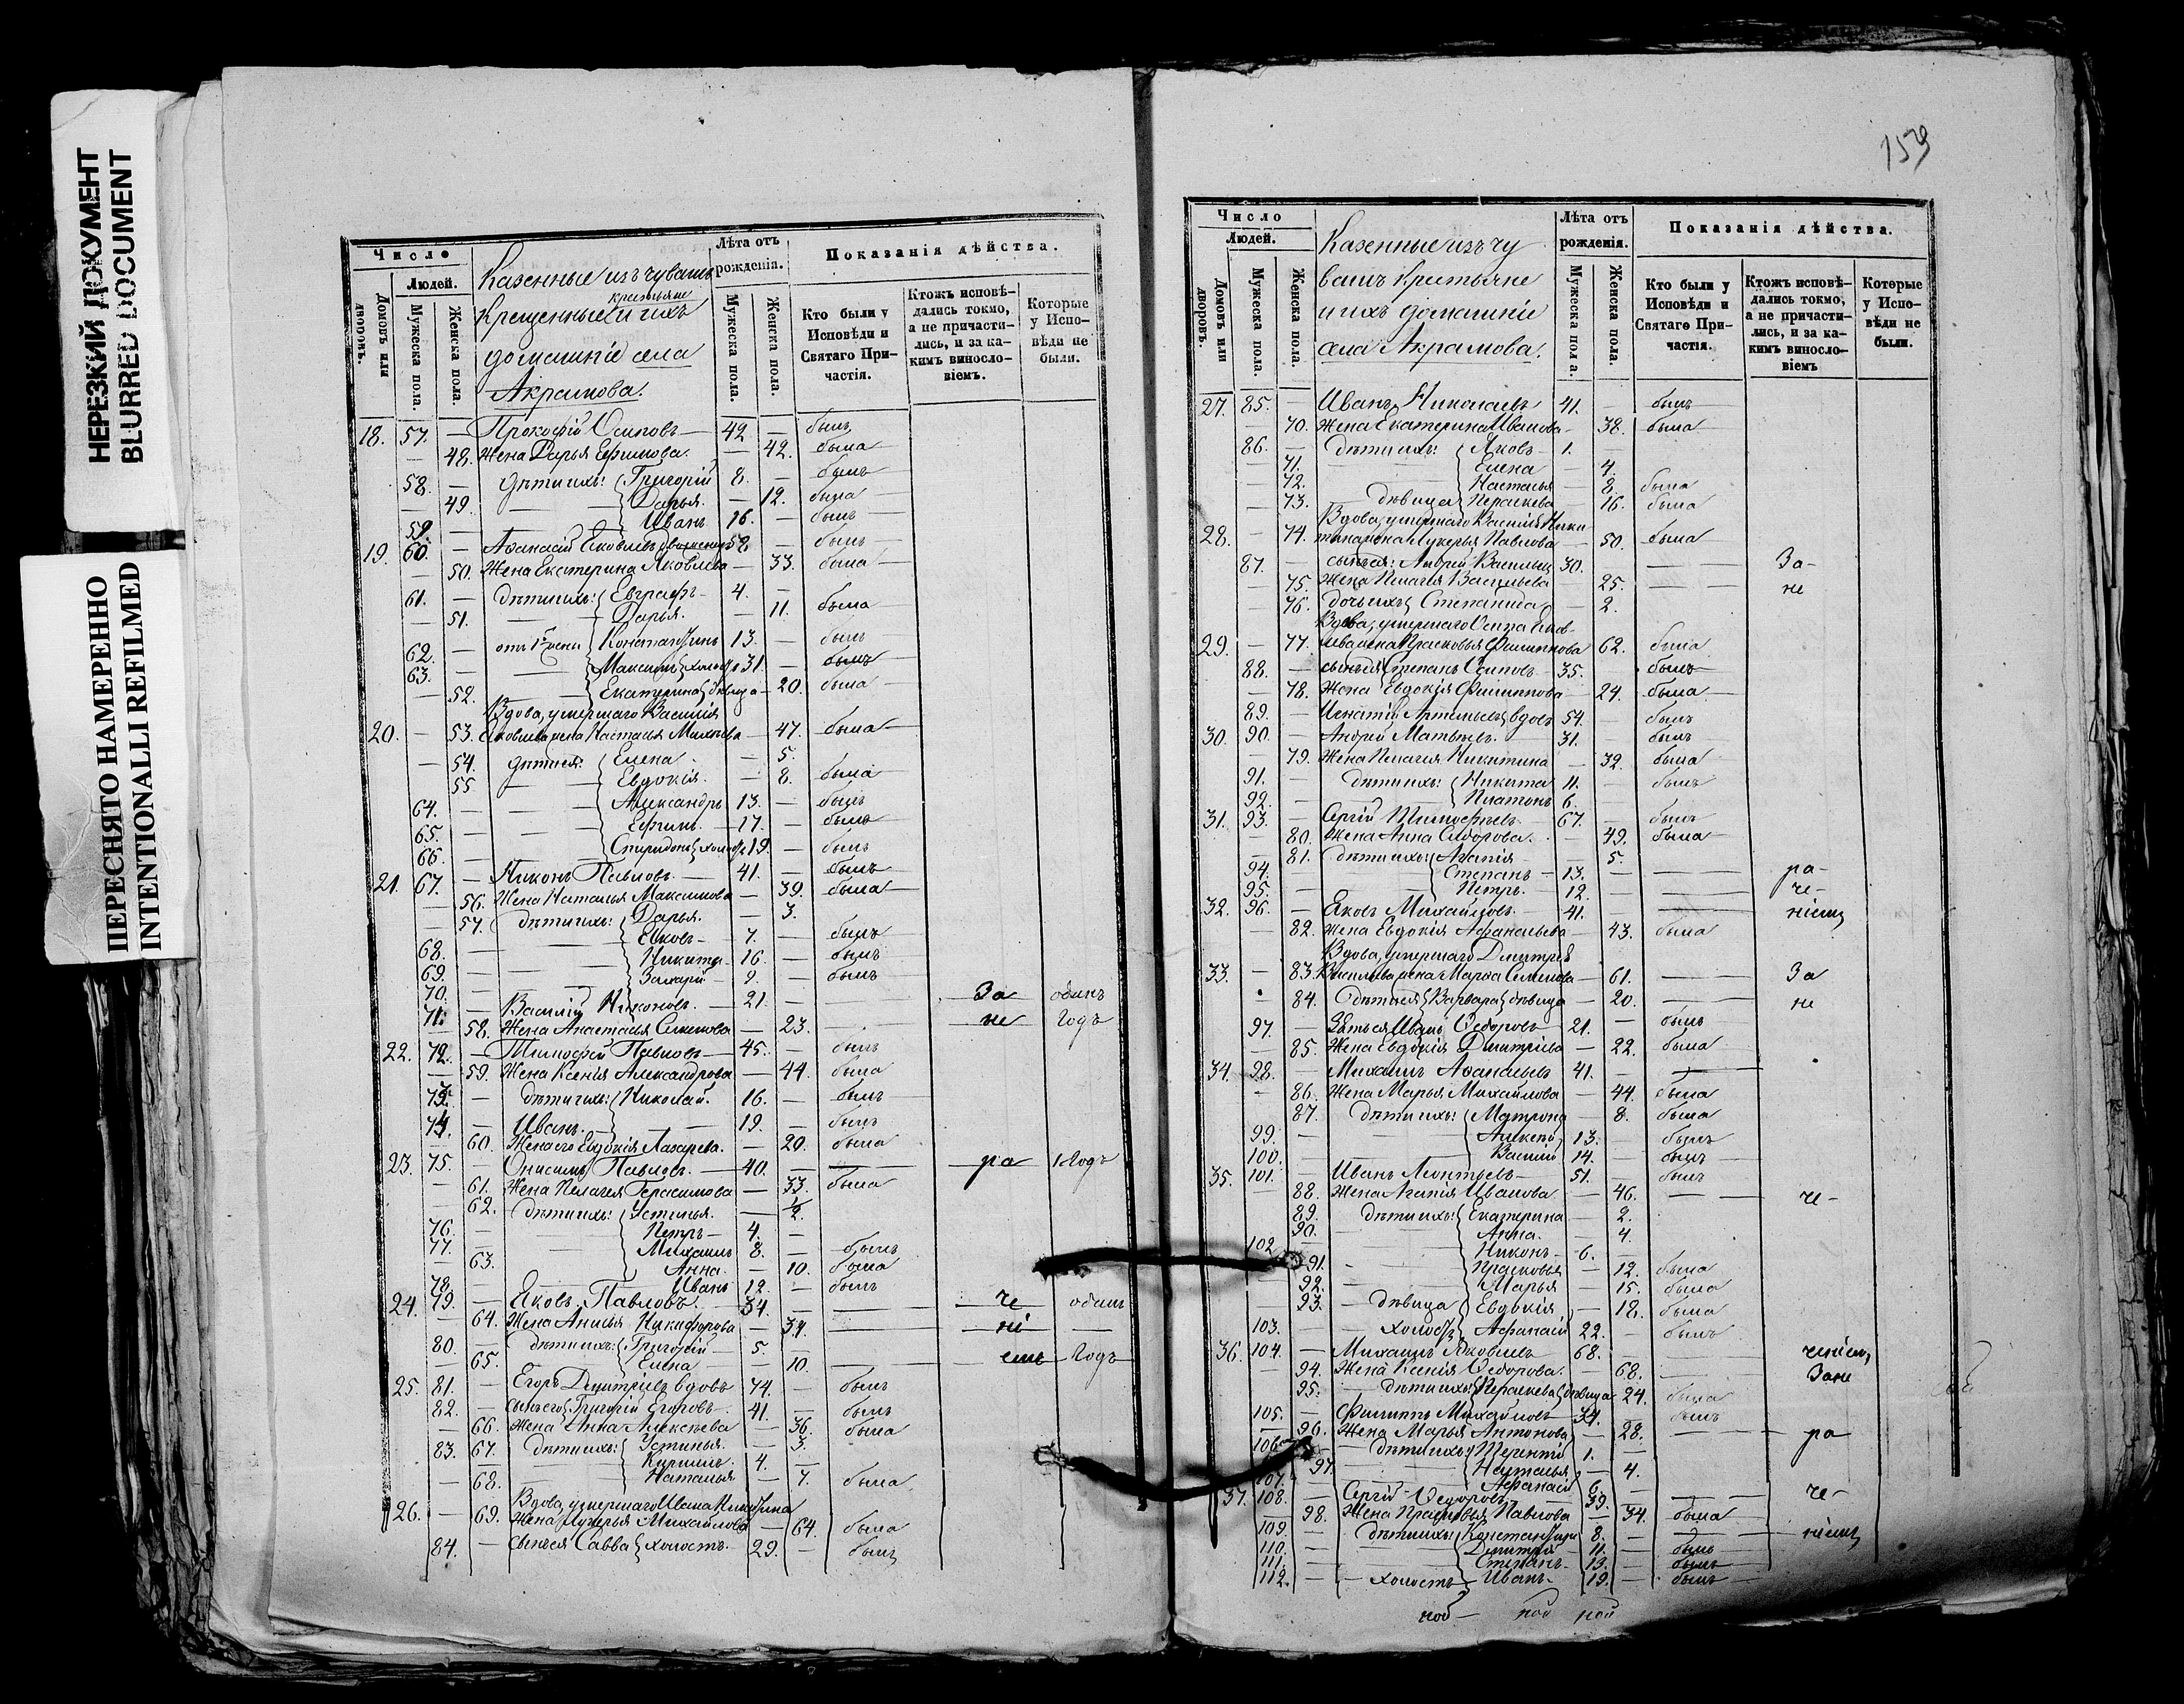 НЕРЕЗКИЙ ДОКУМЕНТ
BLURRED DOCUMENT
ПЕРЕСНЯТО НАМЕРЕННО
INTENTIONALLI REFILMED
Число
Людей.
Домовъ или дворовъ.
Мужеска пола.
Женска пола.
Казенные изъ чувашъ
крестьяне
Крещенные и ихъ
домашніе села
Акрамова.
Лѣта отъ рожденія.
Мужеска пола.
Женска пола.
Показанія дѣйства.
Кто были у Исповѣди и Святаго Причастія.
Ктожъ исповѣдались токмо, а не причастились, и за какимъ винословіемъ.
Которые у Исповѣди не были.
18. 57. — Прокофій Осиповъ — 42 — былъ
— 48. Жена Дарья Ефимова. — 42. была
58. — дѣти ихъ: Григорій 8. — былъ
— 49. — Дарья. — 12. была
59. — Иванъ 16. — былъ
19. 60. — Аѳанасій Яковлевъ 58 — былъ
— 50. Жена Екатерина Яковлева — 33. была
61. — дѣти ихъ: Евграфъ 4. —
— 51. — Дарья. — 11. была
62. — отъ 1й жены Константинъ 13. — былъ
63. — Максимъ холостъ 31. — былъ
— 52. — Екатерина дѣвица — 20. была
Вдова, умершаго Василія
20. — 53. Яковлева жена Настасья — 47. была
— 54. дѣти ея: Елена — 5.
55 — Евдокія. — 8. была
64. — Александръ 13. — былъ
65. — Ефимъ. — 17. — былъ
66. — Спиридонъ холостъ 19. — былъ
21. 67. — Никонъ Павловъ. — 41. — былъ
— 56. Жена Наталья Максимова — 39. была
— 57. дѣти ихъ: Дарья. — 3.
68. — Яковъ — 7. — былъ
69. — Никита 16. — былъ
70. — Захарій — 9. — былъ
71. — Василій Никоновъ. — 21. — За одинъ
— 58. Жена Анастасья Семенова — 23. — не годъ
22. 72. — Тимофей Павловъ — 45. — былъ
— 59. Жена Ксенія Александрова — 44. была
73. — дѣти ихъ: Николай. 16. — былъ
74. — Иванъ. — 19. — былъ
— 60. Жена его Евдокія Лазарева. — 20. была
23. 75. — Онисимъ Павловъ. — 40. — ра 1 годъ
— 61. Жена Пелагея Герасимова — 33. была
— 62. дѣти ихъ: Устинья. — 1/2.
76. — Петръ — 4. —
77. — Михаилъ 8. — былъ
— 63. — Анна. — 10. была
78. — Иванъ 12. — былъ
24. 79. — Яковъ Павловъ. 34. — че одинъ
— 64. Жена Анисья Никифорова — 34. — ні —
80. — дѣти ихъ: Григорій — 5. —
— 65. Елена — 10. — емъ годъ
25. 81. — Егоръ Дмитріевъ вдовъ 74. — былъ
82. — сынъ его Григорій Егоровъ. 41. — былъ
— 66. Жена Анна Алексѣева — 36. была
83. 67. дѣти ихъ: Устинья. — 3.
Кирилъ. 4. —
— 68. — Наталья — 7. была
Вдова, умершаго Ивана Никитина
26. — 69. жена Лукерья Михайлова — 64. была
84. — сынъ ея Савва холостъ. 29. — былъ
159
Число
Людей.
Домовъ или дворовъ.
Мужеска пола.
Женска пола.
Казенные изъ чу
вашъ Крестьяне
и ихъ домашніе
села Акрамова.
Лѣта отъ рожденія.
Мужеска пола.
Женска пола.
Показанія дѣйства.
Кто были у Исповѣди и Святаго Причастія.
Ктожъ исповѣдались токмо, а не причастились, и за какимъ винословіемъ
Которые у Исповѣди не были.
27. 85. — Иванъ Николаевъ 41. — былъ
— 70. Жена Екатерина Иванова — 38. была
86. — дѣти ихъ: Яковъ — 1. —
— 71. — Елена — 4.
— 72. — Настасья — 8. была
— 73. — дѣвица Пераскева — 16. была
Вдова, умершаго Василія Ники
28. — 74. тина жена Лукерья Павлова — 50. была
87. — сынъ ея: Андрей Васильевъ 30. — За-
— 75. Жена Пелагея Васильева 25. — не
— 76. дочь ихъ Степанида — 2.
Вдова, умершаго Осипа
29. — 77. жена Прасковья Филиппова 62. была
88. — сынъ ея Степанъ Осиповъ 35. былъ
— 78. Жена Евдокія Филиппова — 24. была
89. — Игнатій Артемьевъ вдовъ 54. — былъ
30. 90. — Андрей Матвѣевъ. 31. — былъ
79. Жена Пелагея Никитина — 32. была
91. — дѣти ихъ: Никита 11. — былъ
92. — Платонъ 6.
31. 93. — Сергій Тимофѣевъ — 67. — былъ
— 80. Жена Анна Сидорова. — 49. была
— 81. дѣти ихъ: Агапія — 5.
94. — Степанъ — 13. — ра-
95. — Петръ. 12. — че-
32. 96. — Яковъ Михайловъ. 41. — ніемъ
— 82. Жена Евдокія Аѳанасьева — 43. была
Вдова, умершаго Дмитрія
33. — 83. Васильева жена Марѳа Семенова — 61. — За
84. дѣти ея Варвара дѣвица — 20. — не
97. — Зять ея Иванъ Ѳедоровъ 21. — былъ
— 85. Жена Евдокія Дмитріева — 22. была
34. 98. — Михаилъ Аѳанасьевъ 41. —
— 86. Жена Марья Михайлова — 44. была
87. дѣти ихъ: Матрона — 8. была
99. — Алексѣй 13. — былъ
100. — Василій 14. — былъ
35. 101. — Иванъ Леонтьевъ 51. — былъ
— 88. Жена Агапія Иванова — 46. — че-
89. дѣти ихъ: Екатерина — 2.
90. — Анна. — 4.
102 — Никонъ — 6. —
91. — Прасковья — 12. была
92. — Марья — 15. была
93. — дѣвица Евдокія — 18. была
103. — холостъ Аѳанасій 22. — былъ
36. 104. — Михаилъ Яковлевъ 68. — ченіемъ
94. Жена Ксенія Ѳедорова. — 68. За не
95. — дѣти ихъ: Пераскева дѣвица 24. была
105. — Филиппъ Михайловъ 34. — былъ
96. Жена Марья Антонова — 28. — ра
106 — дѣти ихъ: Терентій 1. —
97. — Наталья — 4.
107. — Аѳанасій 6.
37. 108. — Сергій Ѳедоровъ 39. — че-
— 98. Жена Прасковья Павлова — 34. была
109. — дѣти ихъ: Константинъ 8. — ніемъ
110. — Дмитрій 11. — былъ
111. — Степанъ 13. — былъ
112. — холостъ Иванъ 19. — былъ